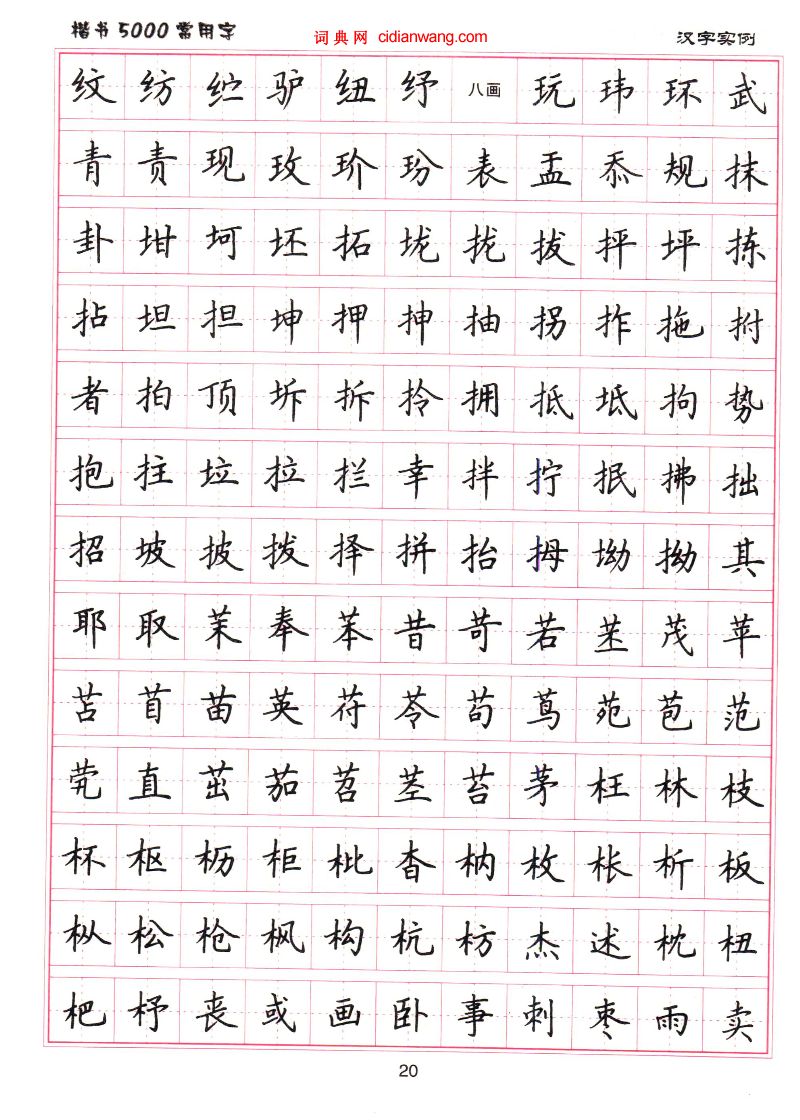 楷书5000常用字 词典网 cidianwang.com 汉字实例
纹 纺 纻 驴 纽 纾 八画 玩 玮 环 武
青 责 现 玫 玠 玢 表 盂 忝 规 抹
卦 坩 坷 坯 拓 垅 拢 拔 抨 坪 拣
拈 坦 担 坤 押 抻 抽 拐 拃 拖 拊
者 拍 顶 坼 拆 拎 拥 抵 坻 拘 势
抱 拄 垃 拉 拦 幸 拌 拧 抿 拂 拙
招 坡 披 拨 择 拚 抬 拇 坳 拗 其
耶 取 茉 奉 苯 昔 苛 若 茏 茂 苹
苫 苜 苗 英 苻 苓 苟 茑 苑 苞 范
茕 直 茁 茄 苕 茎 苔 茅 枉 林 枝
杯 枢 枥 柜 枇 杳 枘 枚 枨 析 板
枞 松 枪 枫 构 杭 枋 杰 述 枕 杻
杷 杼 丧 或 画 卧 事 刺 枣 雨 卖
20